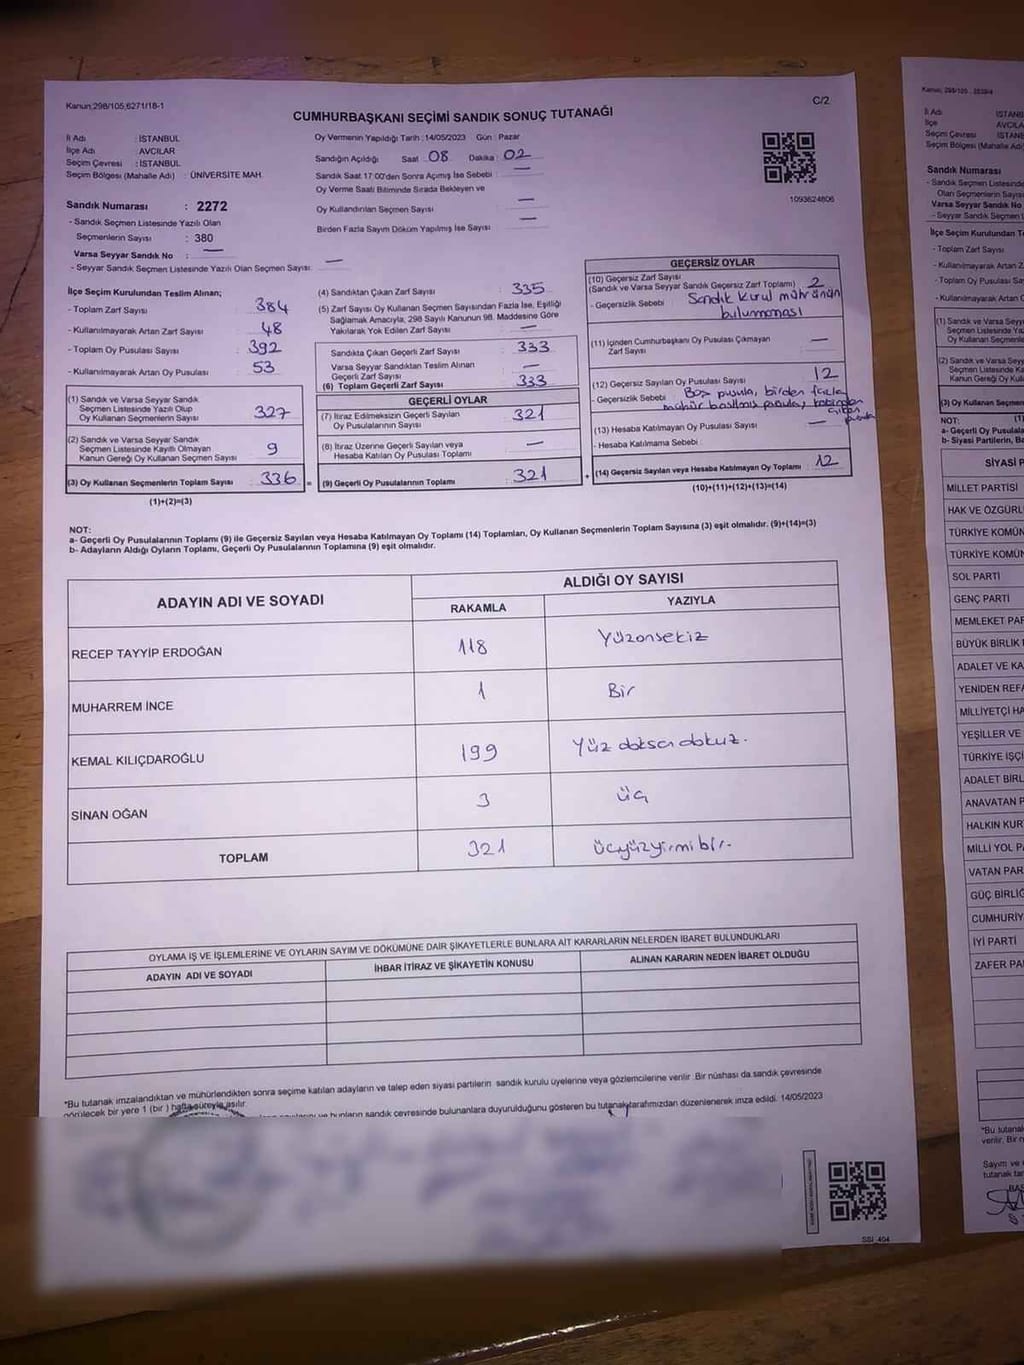 Kanun;298/105,6271/18-1
C/2
CUMHURBAŞKANI SEÇİMİ SANDIK SONUÇ TUTANAĞI
İl Adı : İSTANBUL
İlçe Adı : AVCILAR
Seçim Çevresi : İSTANBUL
Seçim Bölgesi (Mahalle Adı) : ÜNİVERSİTE MAH.
Sandık Numarası : 2272
- Sandık Seçmen Listesinde Yazılı Olan
Seçmenlerin Sayısı : 380
Varsa Seyyar Sandık No : —
- Seyyar Sandık Seçmen Listesinde Yazılı Olan Seçmen Sayısı: —
Oy Vermenin Yapıldığı Tarih : 14/05/2023 Gün : Pazar
Sandığın Açıldığı Saat 08 Dakika 02
Sandık Saat 17:00'den Sonra Açımış İse Sebebi : —
Oy Verme Saati Bitiminde Sırada Bekleyen ve
Oy Kullandırılan Seçmen Sayısı —
Birden Fazla Sayım Döküm Yapılmış İse Sayısı : —
1093624806
İlçe Seçim Kurulundan Teslim Alınan;
- Toplam Zarf Sayısı : 384
- Kullanılmayarak Artan Zarf Sayısı : 48
- Toplam Oy Pusulası Sayısı : 392
- Kullanılmayarak Artan Oy Pusulası : 53
(1) Sandık ve Varsa Seyyar Sandık
Seçmen Listesinde Yazılı Olup
Oy Kullanan Seçmenlerin Sayısı : 327
(2) Sandık ve Varsa Seyyar Sandık
Seçmen Listesinde Kayıtlı Olmayan
Kanun Gereği Oy Kullanan Seçmen Sayısı : 9
(3) Oy Kullanan Seçmenlerin Toplam Sayısı : 336 =
(1)+(2)=(3)
(4) Sandıktan Çıkan Zarf Sayısı : 335
(5) Zarf Sayısı Oy Kullanan Seçmen Sayısından Fazla İse, Eşitliği
Sağlamak Amacıyla, 298 Sayılı Kanunun 98. Maddesine Göre
Yakılarak Yok Edilen Zarf Sayısı : —
Sandıkta Çıkan Geçerli Zarf Sayısı : 333
Varsa Seyyar Sandıktan Teslim Alınan
Geçerli Zarf Sayısı : —
(6) Toplam Geçerli Zarf Sayısı : 333
GEÇERLİ OYLAR
(7) İtiraz Edilmeksizin Geçerli Sayılan
Oy Pusulalarının Sayısı : 321
(8) İtiraz Üzerine Geçerli Sayılan veya
Hesaba Katılan Oy Pusulası Toplamı : —
(9) Geçerli Oy Pusulalarının Toplamı : 321 +
GEÇERSİZ OYLAR
(10) Geçersiz Zarf Sayısı
(Sandık ve Varsa Seyyar Sandık Geçersiz Zarf Toplamı) : 2
- Geçersizlik Sebebi : Sandık kurul mührünün
bulunmaması
(11) İçinden Cumhurbaşkanı Oy Pusulası Çıkmayan
Zarf Sayısı : —
(12) Geçersiz Sayılan Oy Pusulası Sayısı : 12
- Geçersizlik Sebebi : Boş pusula, birden fazla
mühür basılmış pusula,
(13) Hesaba Katılmayan Oy Pusulası Sayısı : —
- Hesaba Katılmama Sebebi :
(14) Geçersiz Sayılan veya Hesaba Katılmayan Oy Toplamı : 12
(10)+(11)+(12)+(13)=(14)
NOT:
a- Geçerli Oy Pusulalarının Toplamı (9) ile Geçersiz Sayılan veya Hesaba Katılmayan Oy Toplamı (14) Toplamları, Oy Kullanan Seçmenlerin Toplam Sayısına (3) eşit olmalıdır. (9)+(14)=(3)
b- Adayların Aldığı Oyların Toplamı, Geçerli Oy Pusulalarının Toplamına (9) eşit olmalıdır.
ADAYIN ADI VE SOYADI
ALDIĞI OY SAYISI
RAKAMLA YAZIYLA
RECEP TAYYİP ERDOĞAN 118 Yüzonsekiz
MUHARREM İNCE 1 Bir
KEMAL KILIÇDAROĞLU 199 Yüz doksan dokuz.
SİNAN OĞAN 3 üç
TOPLAM 321 üçyüzyirmibir.
OYLAMA İŞ VE İŞLEMLERİNE VE OYLARIN SAYIM VE DÖKÜMÜNE DAİR ŞİKAYETLERLE BUNLARA AİT KARARLARIN NELERDEN İBARET BULUNDUKLARI
ADAYIN ADI VE SOYADI İHBAR İTİRAZ VE ŞİKAYETİN KONUSU ALINAN KARARIN NEDEN İBARET OLDUĞU
*Bu tutanak imzalandıktan ve mühürlendikten sonra seçime katılan adayların ve talep eden siyasi partilerin sandık kurulu üyelerine veya gözlemcilerine verilir. Bir nüshası da sandık çevresinde
görülecek bir yere 1 (bir) hafta süreyle asılır.
ve bunların sandık çevresinde bulunanlara duyurulduğunu gösteren bu tutanak tarafımızdan düzenlenerek imza edildi. 14/05/2023
SSI_404
İl Adı
İlçe
Seçim Çevresi
Seçim Bölgesi (Mahalle Adı)
Sandık Numarası
- Sandık Seçmen Listesinde
Olan Seçmenlerin Sayısı
Varsa Seyyar Sandık No
- Seyyar Sandık Seçmen
İlçe Seçim Kurulundan
- Toplam Zarf Sayısı
- Kullanılmayarak Artan
- Toplam Oy Pusulası
- Kullanılmayarak Artan
(1) Sandık ve Varsa
Seçmen Listesinde
Oy Kullanan Seçmen
(2) Sandık ve Varsa
Seçmen Listesinde
Kanun Gereği Oy
(3) Oy Kullanan
NOT:
a- Geçerli Oy
b- Siyasi Partilerin,
SİYASİ
MİLLET PARTİSİ
HAK VE
TÜRKİYE
TÜRKİYE
SOL PARTİ
GENÇ PARTİ
MEMLEKET
BÜYÜK BİRLİK
ADALET VE
YENİDEN
MİLLİYETÇİ
YEŞİLLER VE
TÜRKİYE İŞÇİ
ADALET
ANAVATAN
HALKIN
MİLLİ YOL
VATAN
GÜÇ
İYİ PARTİ
ZAFER
*Bu
verilir. Bir
Sayım ve
tutanak